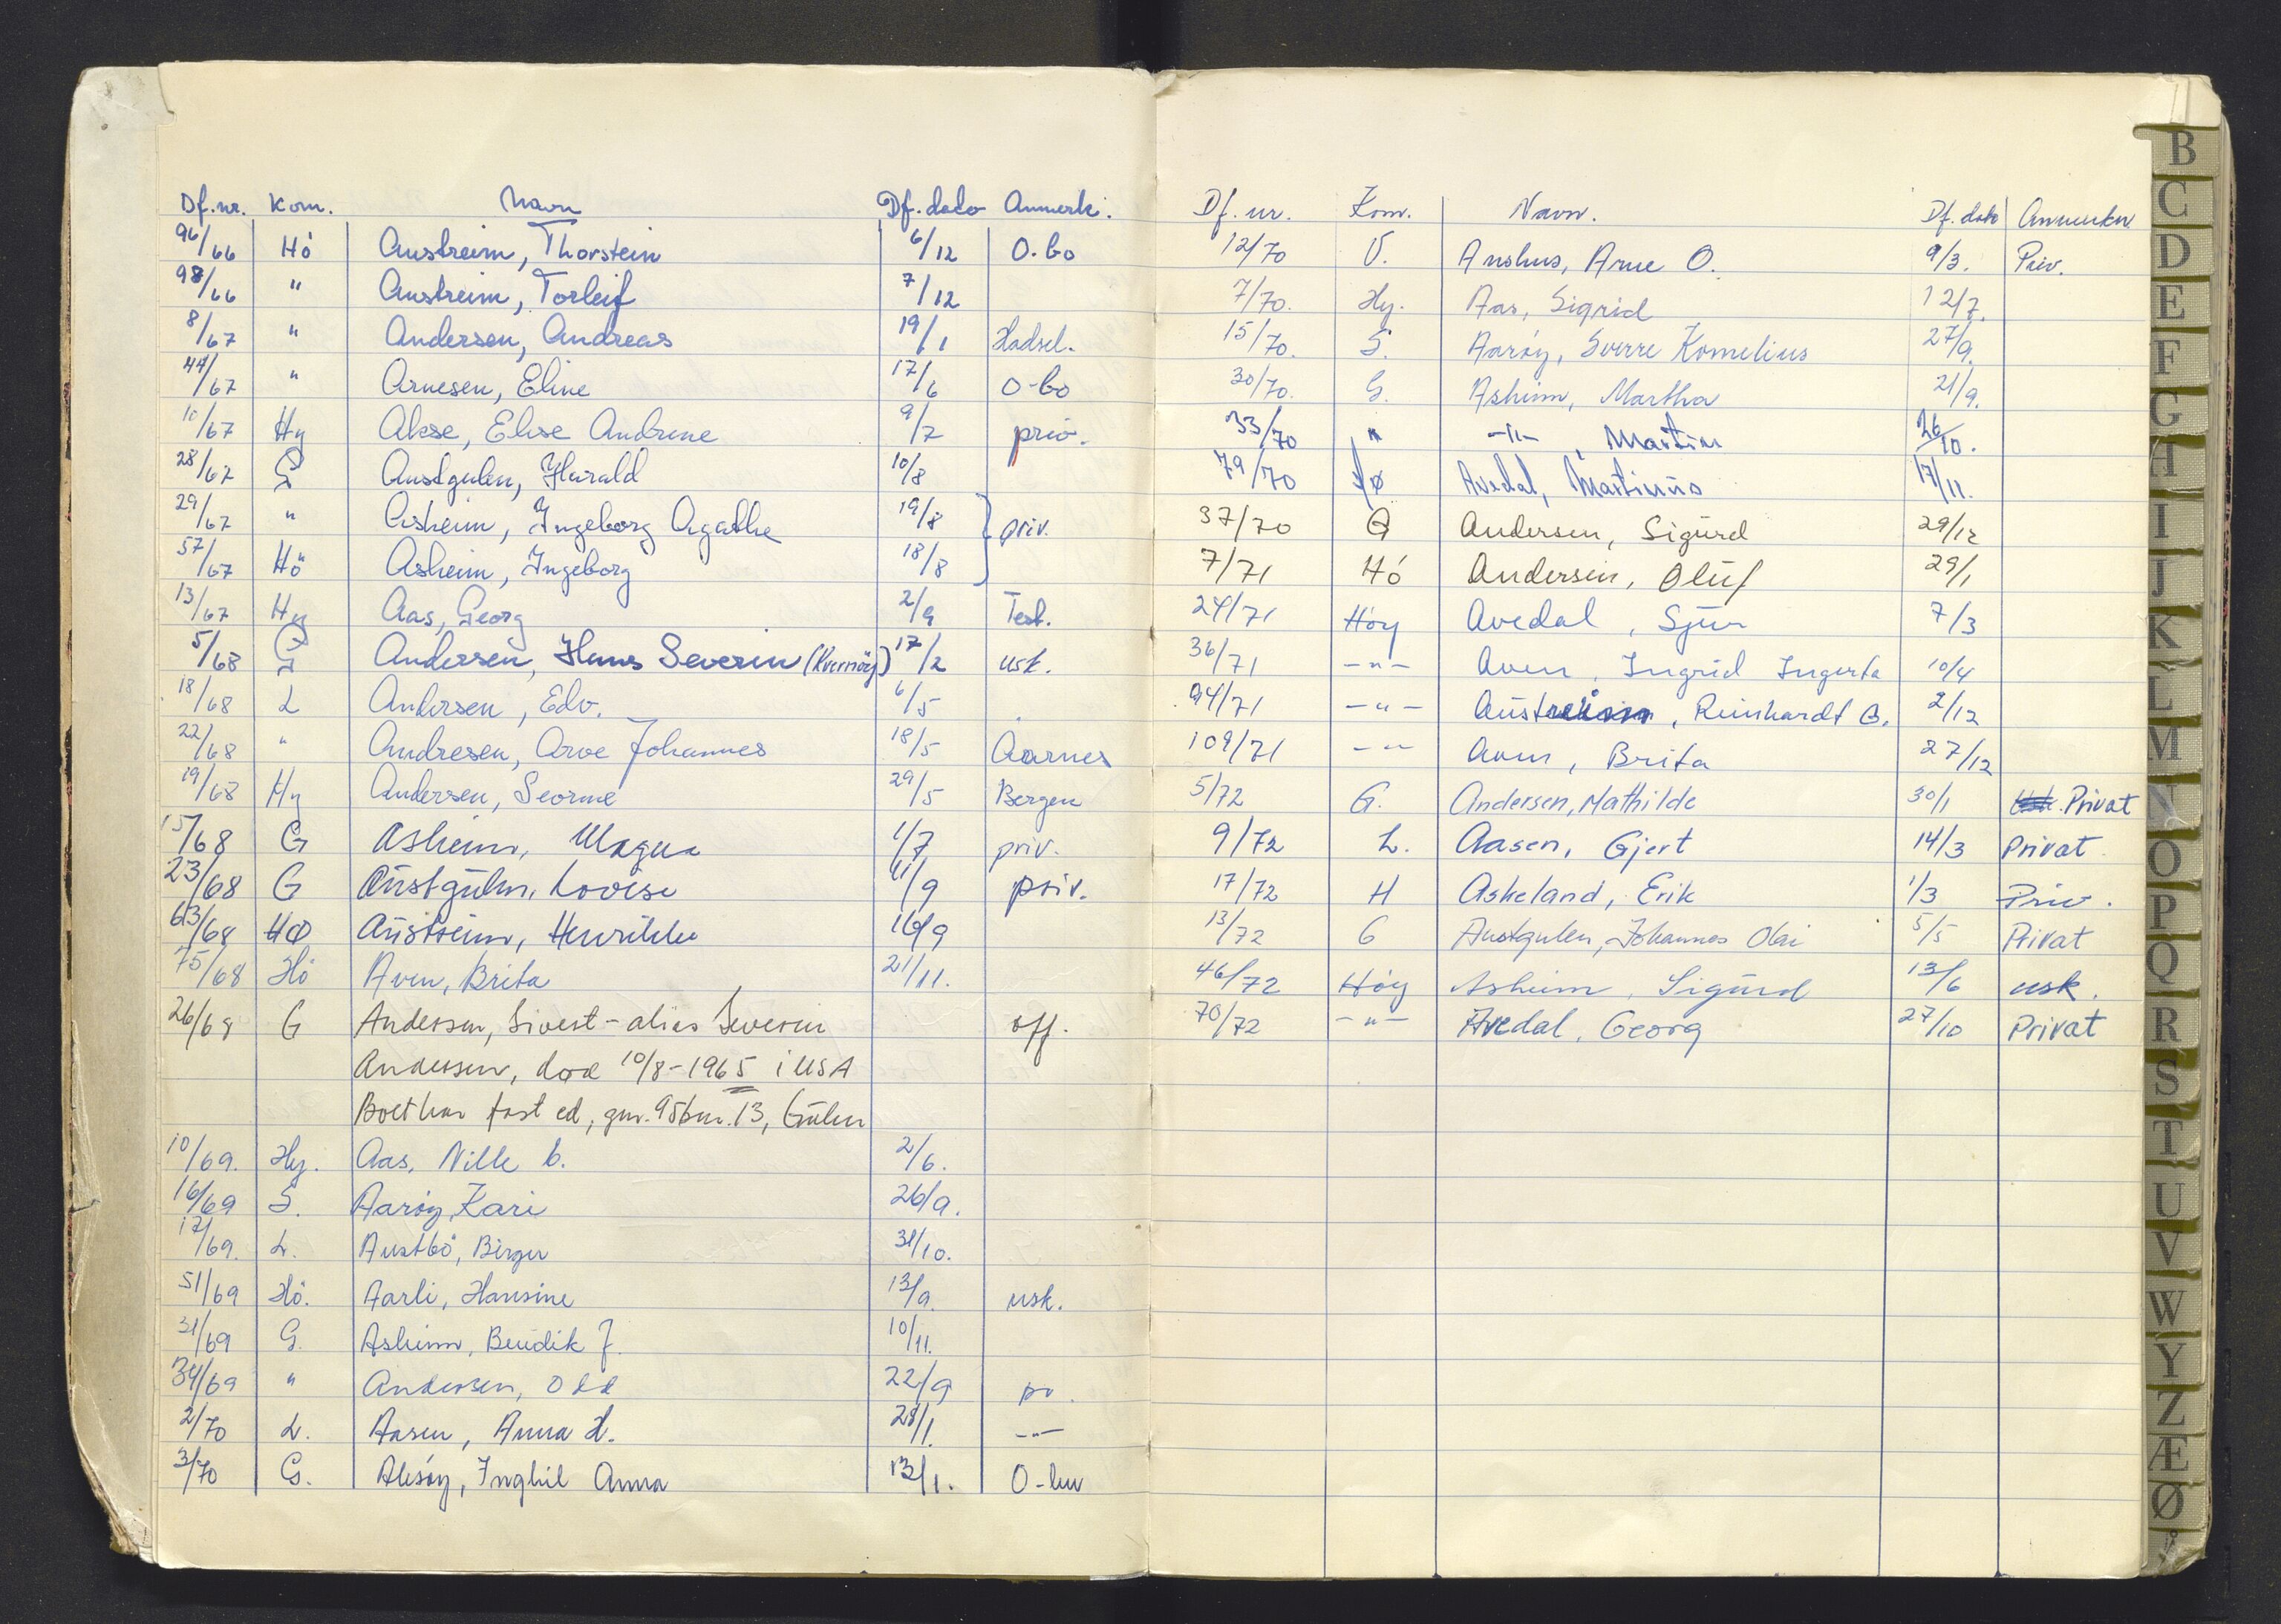 Df.nr. Kom. Navn Df.dato Anmerk.
96/66 Hö Austreim, Thorstein 6/12 O.bo
98/66 " Austreim, Torleif 7/12
8/67 " Andersen, Andreas 19/1 Hadsel.
44/67 " Arnesen, Eline 17/6 O-bo
10/67 Hy Akse, Elise Andrine 9/7 priv.
28/67 G Austgulen, Harald 10/8
29/67 " Asheim, Ingeborg Agathe 19/8 priv.
57/67 Hö Asheim, Ingeborg 18/8
13/67 Hy Aas, Georg 2/9 Test.
5/68 G Andersen, Hans Severin (Kvernöy) 17/2 usk.
18/68 L Andersen, Edv. 6/5
22/68 " Andresen, Arve Johannes 18/5 Aarnes
19/68 Hy Andersen, 29/5 Bergen
15/68 G Asheim, Magna 1/7 priv.
23/68 G Austgulen, Lovise 11/9 priv.
63/68 HØ Austreim, Henrikke 16/9
75/68 Hö Aven, Brita 21/11.
26/68 G Andersen, Sivert - alias Severin off.
Andersen, død 10/8-1965 i USA
Boet har fast ed, gnr. 95 bnr. 13, Gulen
10/69. Hy. Aas, Nille b. 2/6.
16/69 S. Aaröy, Kari 26/9.
17/69. L. Austbö, Birger 31/10.
51/69 Hö. Aarli, Hansine 13/9. usk.
31/69 G. Asheim, Bendik J. 10/11.
34/69 " Andersen, Odd 22/9 pr.
2/70 L. Aasen, Anna H. 28/1. -"-
3/70 G. Alesöy, Inghil Anna 13/1.
Df. nr. Kom. Navn. Df. dato Anmerkn
12/70 V. Anshus, Arne O. 9/3. Priv.
7/70. Hy. Aas, Sigrid 12/7.
15/70. S. Aaröy, Sverre Kornelius 27/9.
30/70. G. Asheim, Martha 21/9.
33/70 " -"-, Martin 26/10.
79/70 Hø Avedal, Martinus 17/11.
37/70 G Andersen, Sigurd 29/12
7/71 Hó Andersen, Oluf 29/1
24/71 Höy Avedal, Sjur 7/3
36/71 -"- Aven, Ingrid Ingerta 10/4
94/71 -"- Austreim, Reinhardt B. 2/12
109/71 -"- Aven, Brita 27/12
5/72 G. Andersen, Mathilde 30/1 Privat
9/72 L. Aasen, Gjert 14/3 Privat
17/72 H Askeland, Erik 1/3 Priv.
13/72 G Austgulen, Johannes Olai 5/5 Privat
46/72 Höy Asheim, Sigurd 13/6 usk.
70/72 -"- Avedal, Georg 27/10 Privat
B
C
D
E
F
G
H
I
J
K
L
M
N
O
P
Q
R
S
T
U
V
W
Y
Z
Æ
Ø
Å